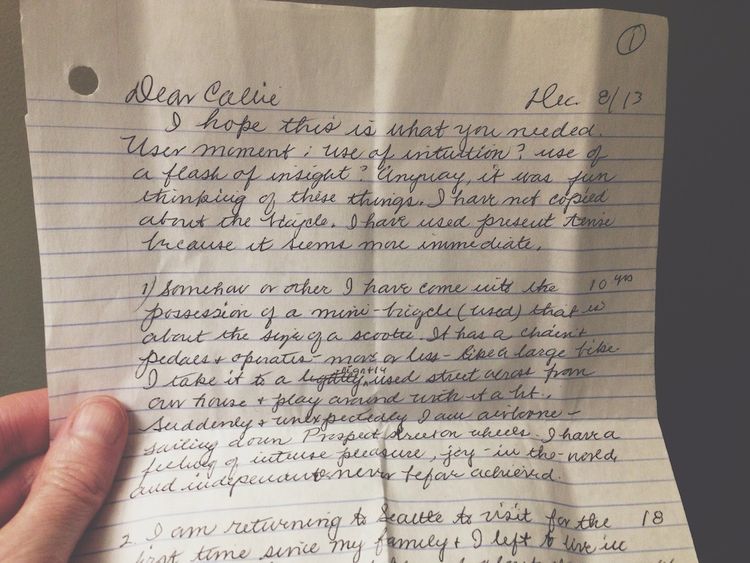 1
Dear Callie Dec. 8/13
I hope this is what you needed.
User moment: use of intuition? use of
a flash of insight? Anyway, it was fun
thinking of these things. I have not copied
about the bicycle. I have used present tense
because it seems more immediate.
1) Somehow or other I have come into the 10 yrs
possession of a mini-bicycle (used) that is
about the size of a scooter. It has a chain +
pedals + operates - more or less - like a large bike
I take it to a lightly used street across from
our house + play around with it a bit.
Suddenly + unexpectedly I am airborne -
sailing down Prospect Street on wheels. I have a
feeling of intense pleasure, joy-in-the-world,
and independence never before achieved.
2 I am returning to Seattle to visit for the 18
first time since my family + I left to live in